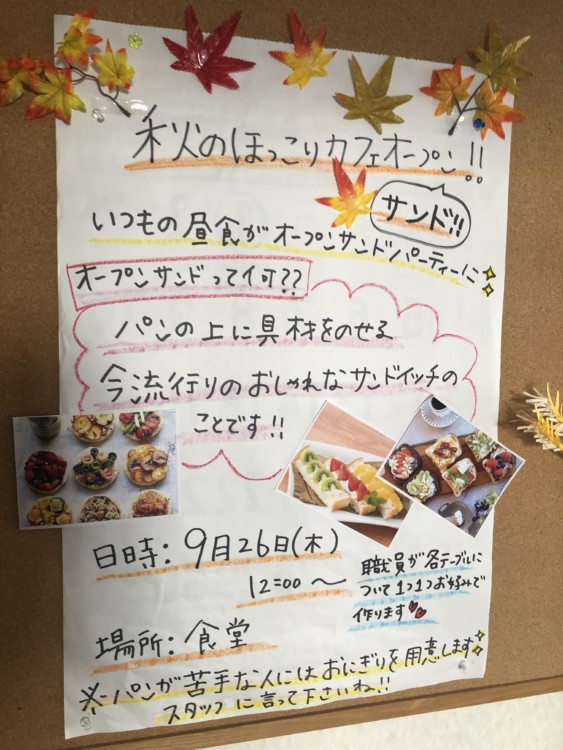 秋のほっこりカフェオープン!!
サンド!!
いつもの昼食がオープンサンドパーティーに
オープンサンドって何??
パンの上に具材をのせる
今流行りのおしゃれなサンドイッチの
ことです!!
日時:9月26日(木)
12:00〜
職員が各テーブルに
ついて1つ1つお好みで
作ります
場所:食堂
※パンが苦手な人にはおにぎりを用意します
スタッフに言って下さいね!!